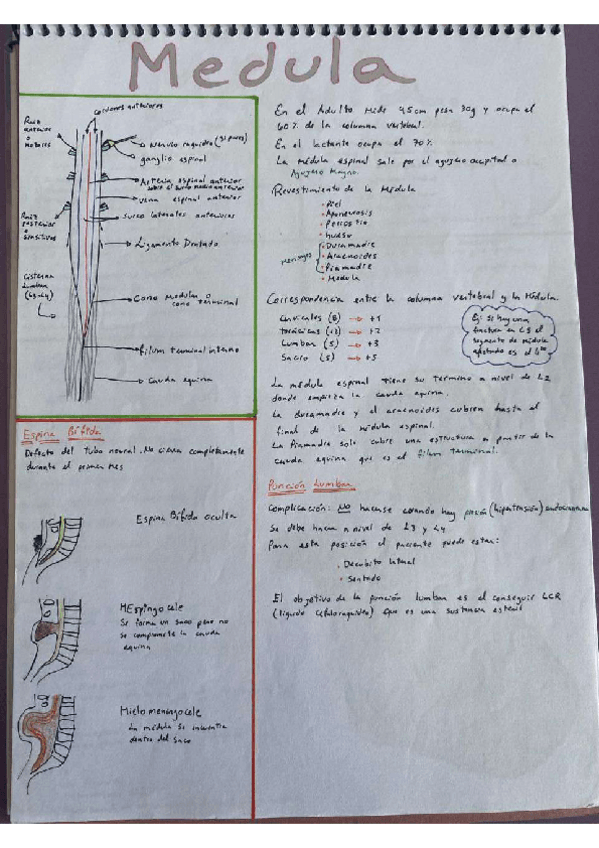 Medula
Cordones anteriores
Raiz
anterior
o
motores
Nervio raquideo (31 pares)
ganglio espinal
Arteria espinal anterior
sobre el surco medio anterior
vena espinal anterior
surco laterales anteriores
Raiz
Posterior
o
sensitivos
Ligamento Dentado
Cisterna
Lumbar
Cono Medular o
cono terminal
Filum terminal interno
Cauda equina
Espina Bífida
Defecto del Tubo neural. No cierra completamente
durante el primer mes
Espina Bífida oculta
MEspingocele
Se forma un saco pero no
se compromete la cauda
equina
Mielo meningocele
La médula se encuentra
dentro del saco
En el Adulto mide 45cm pesa 30g y ocupa el
60% de la columna vertebral.
En el lactante ocupa el 70%
La médula espinal sale por el agujero occipital o
Agujero Magno.
Revestimiento de la Medula
• Piel
• Aponeurosis
• Periostio
• hueso
Meninges
• Duramadre
• Aracnoides
• Piamadre
• Medula
Correspondencia entre la columna vertebral y la Médula.
Cervicales (8) → +1
torácicas (12) → +2
Lumbar (5) → +3
Sacro (5) → +5
Ej: si hay una
fractura en L3 el
segmento de médula
afectado es el
La médula espinal tiene su termino a nivel de L2
donde empieza la cauda equina.
La Duramadre y el aracnoides cubren hasta el
final de la médula espinal.
La Piamadre solo cubre una estructura a partir de la
cauda equina que es el filum terminal.
Punción Lumbar
Complicación: NO hacerse cuando hay presión (hipertensión) endocraneana
Se debe hacer a nivel de L3 y L4
Para esta posición el paciente puede estar:
• Decúbito lateral
• Sentado
El objetivo de la punción lumbar es el conseguir LCR
(liquido Cefalorraquideo) que es una sustancia esteril